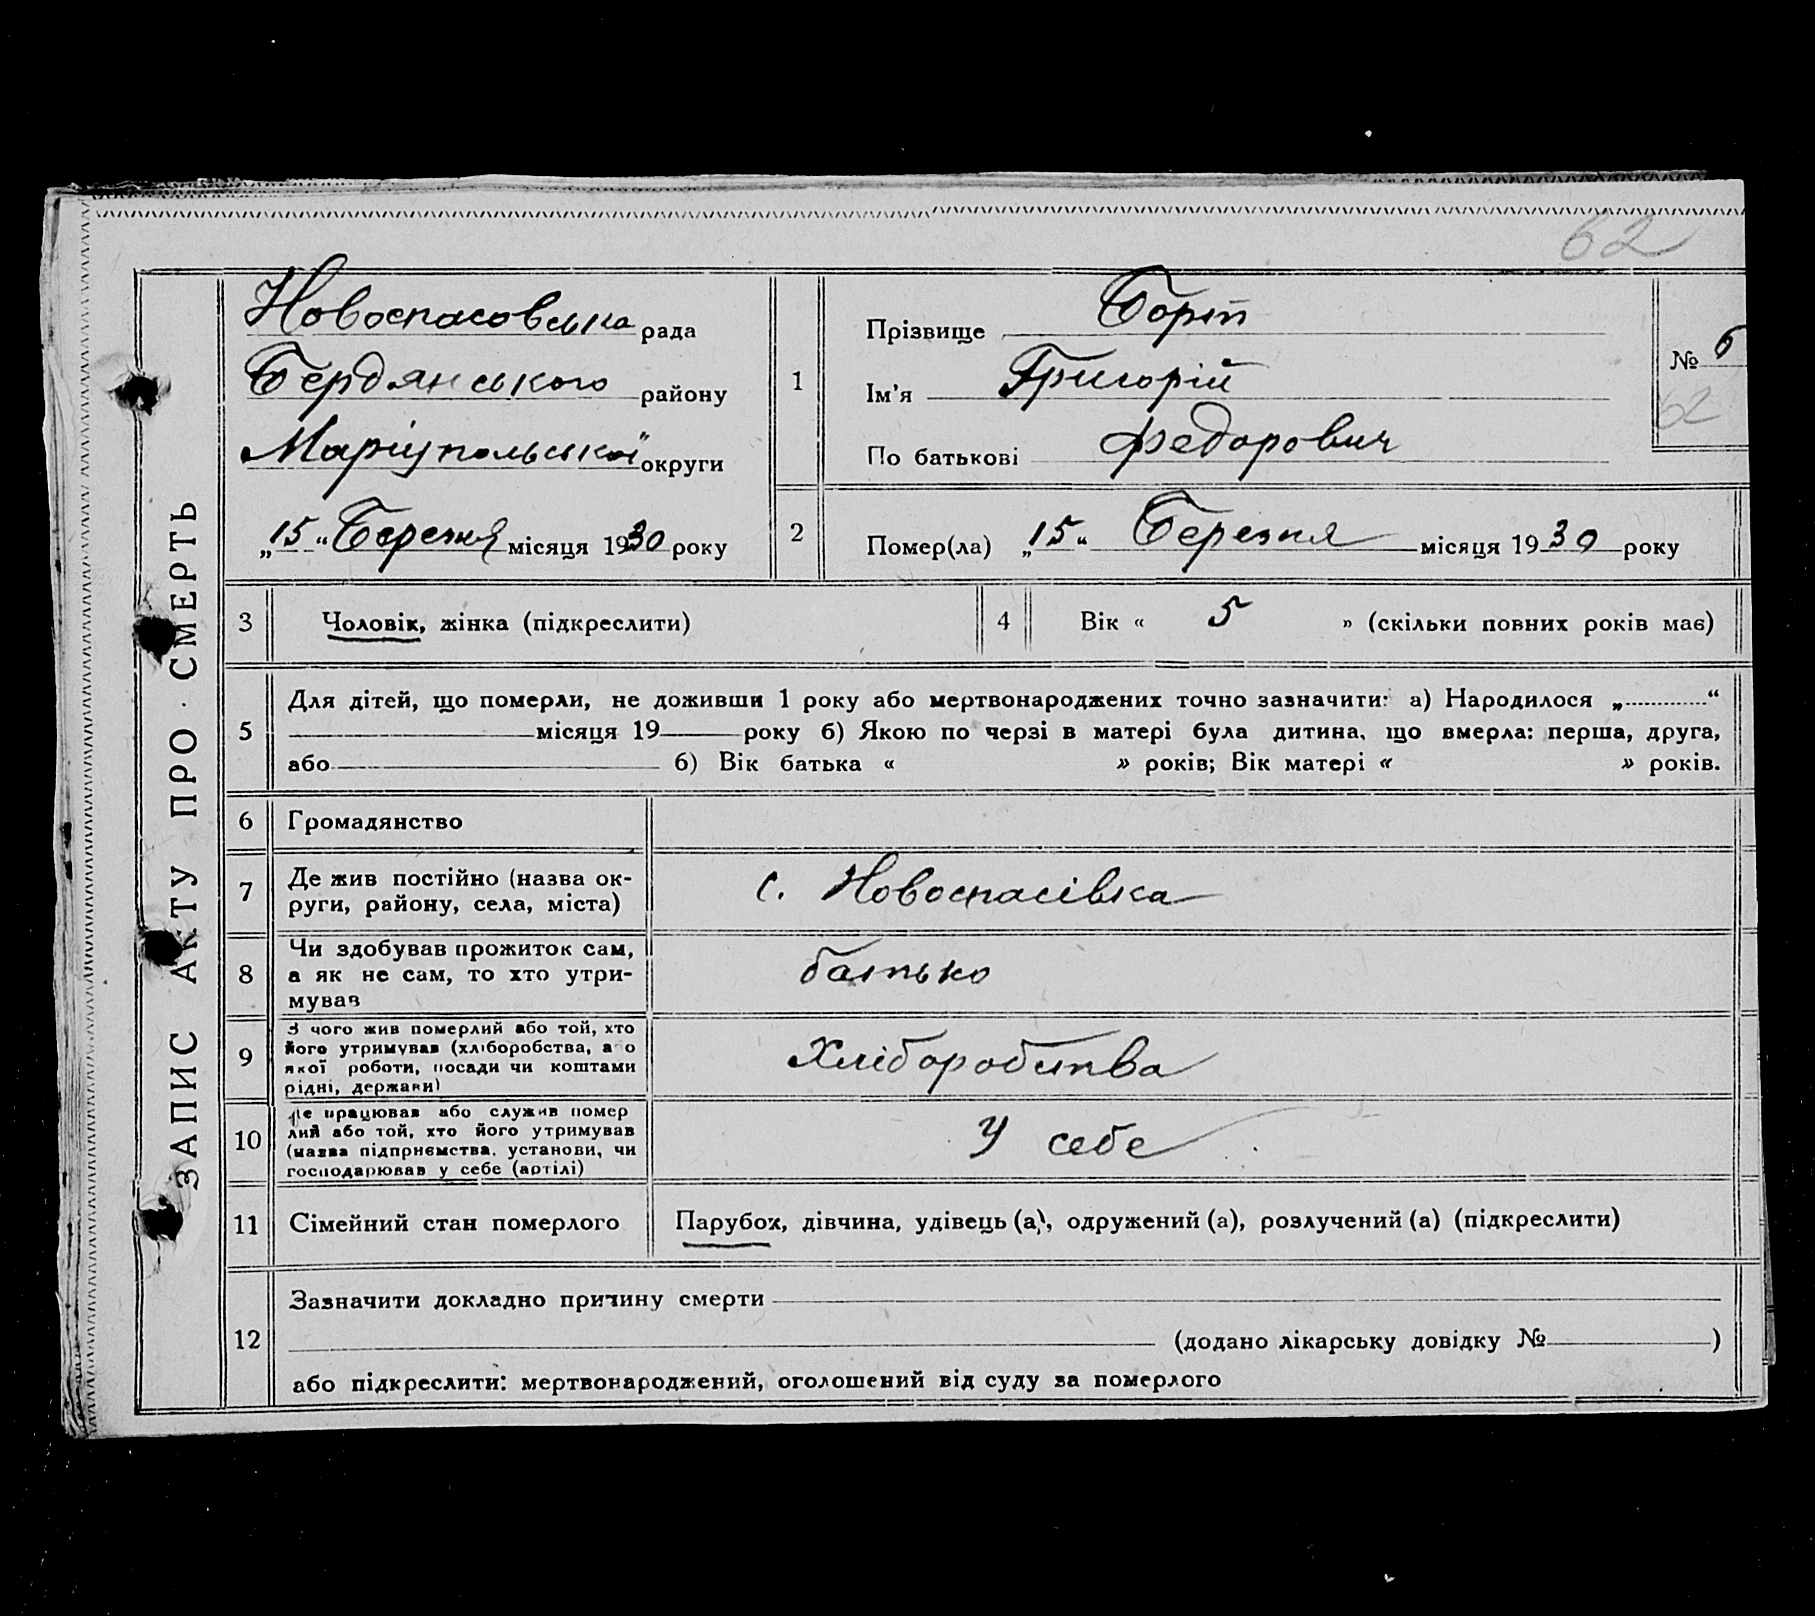 62
ЗАПИС АКТУ ПРО СМЕРТЬ
Новоспасовська рада
Бердянського району
Маріупольської округи
„15“ Березня місяця 1930 року
1
Прізвище Борт
Ім'я Григорій
По батькові Федорович
№ 6
62
2
Помер(ла) „15“ Березня місяця 1930 року
3 Чоловік, жінка (підкреслити)
4 Вік « 5 » (скільки повних років має)
5
Для дітей, що померли, не доживши 1 року або мертвонароджених точно зазначити: а) Народилося „ “
місяця 19 року б) Якою по черзі в матері була дитина, що вмерла: перша, друга,
або б) Вік батька « » років; Вік матері « » років.
6 Громадянство
7
Де жив постійно (назва ок-
руги, району, села, міста)
с. Новоспасівка
8
Чи здобував прожиток сам,
а як не сам, то хто утри-
мував
батько
9
З чого жив померлий або той, хто
його утримував (хліборобства, а о
якої роботи, посади чи коштами
рідні, держави)
Хліборобства
10
Де працював або служив помер
лий або той, хто його утримував
(назва підприємства, установи, чи
господарював у себе (артілі)
У себе
11 Сімейний стан померлого
Парубок, дівчина, удівець (а), одружений (а), розлучений (а) (підкреслити)
12
Зазначити докладно причину смерти
(додано лікарську довідку № )
або підкреслити: мертвонароджений, оголошений від суду за померлого